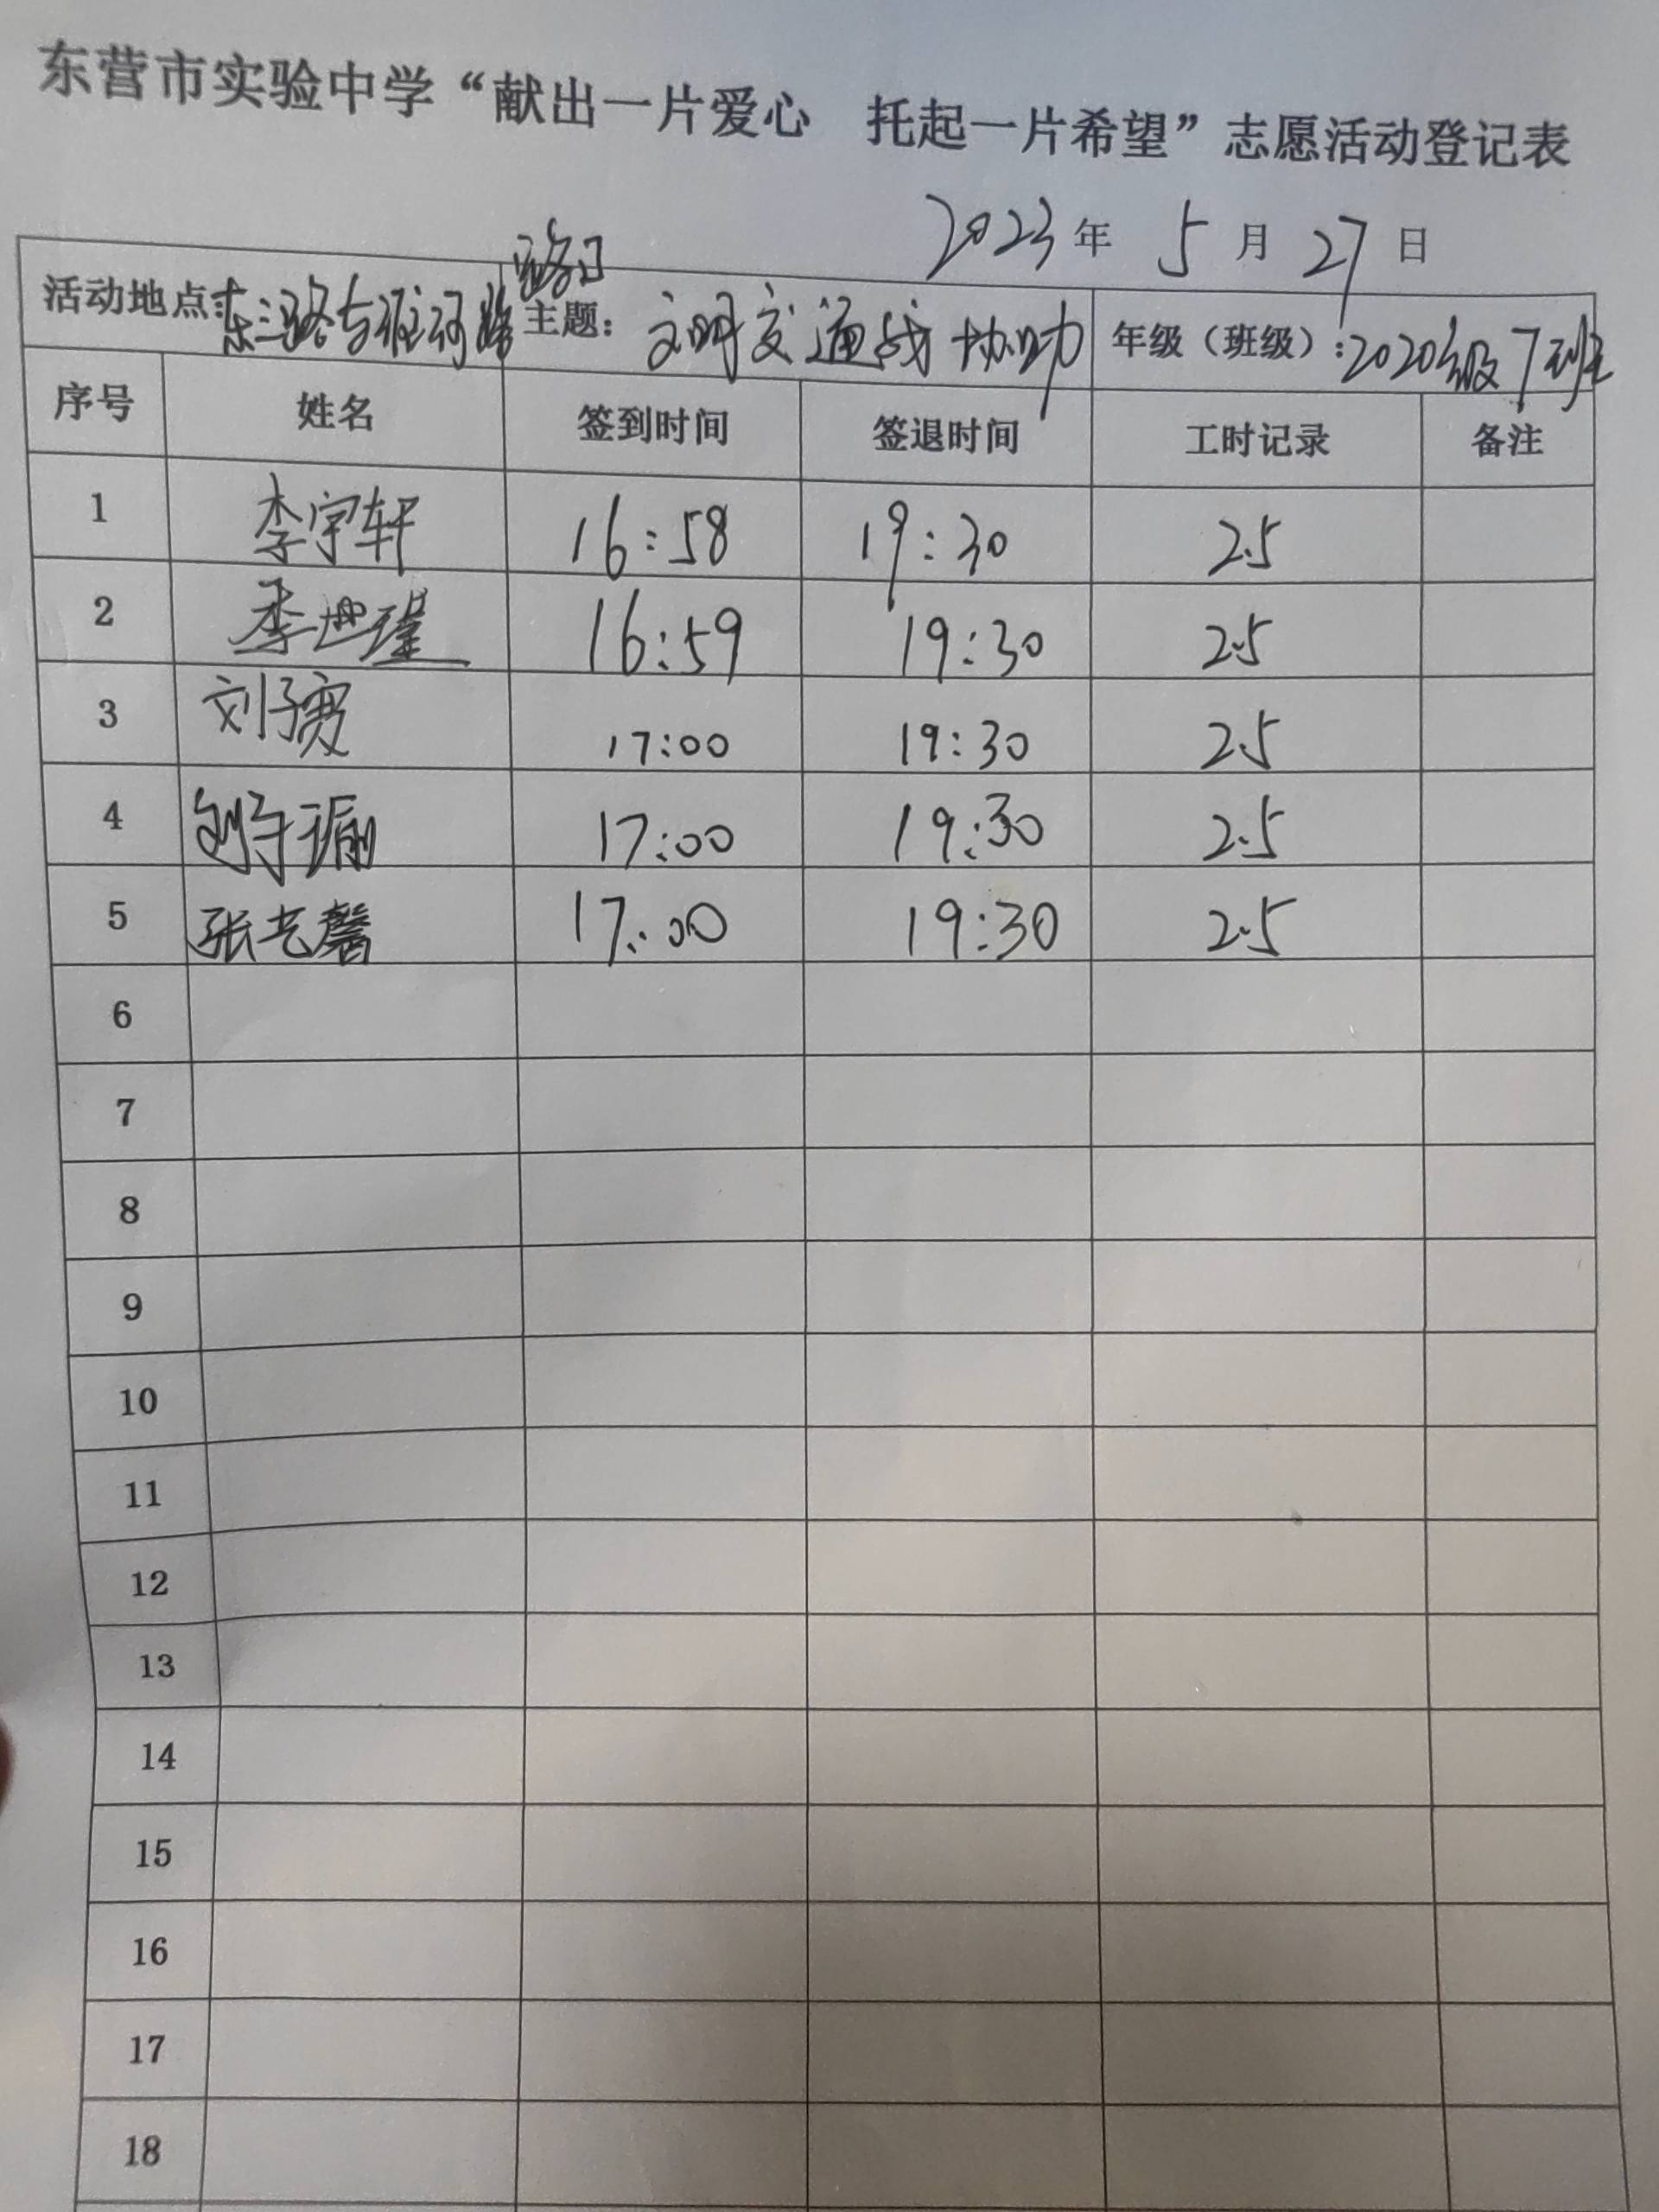 东营市实验中学“献出一片爱心 托起一片希望”志愿活动登记表
2023年 5月 27日
活动地点:东三路与淮河路路口 主题:文明交通我协助 年级(班级):2020级7班
序号 姓名 签到时间 签退时间 工时记录 备注
1 李宇轩 16:58 19:30 2.5
2 李世瑾 16:59 19:30 2.5
3 刘子 17:00 19:30 2.5
4 刘 17:00 19:30 2.5
5 张艺馨 17:00 19:30 2.5
6
7
8
9
10
11
12
13
14
15
16
17
18